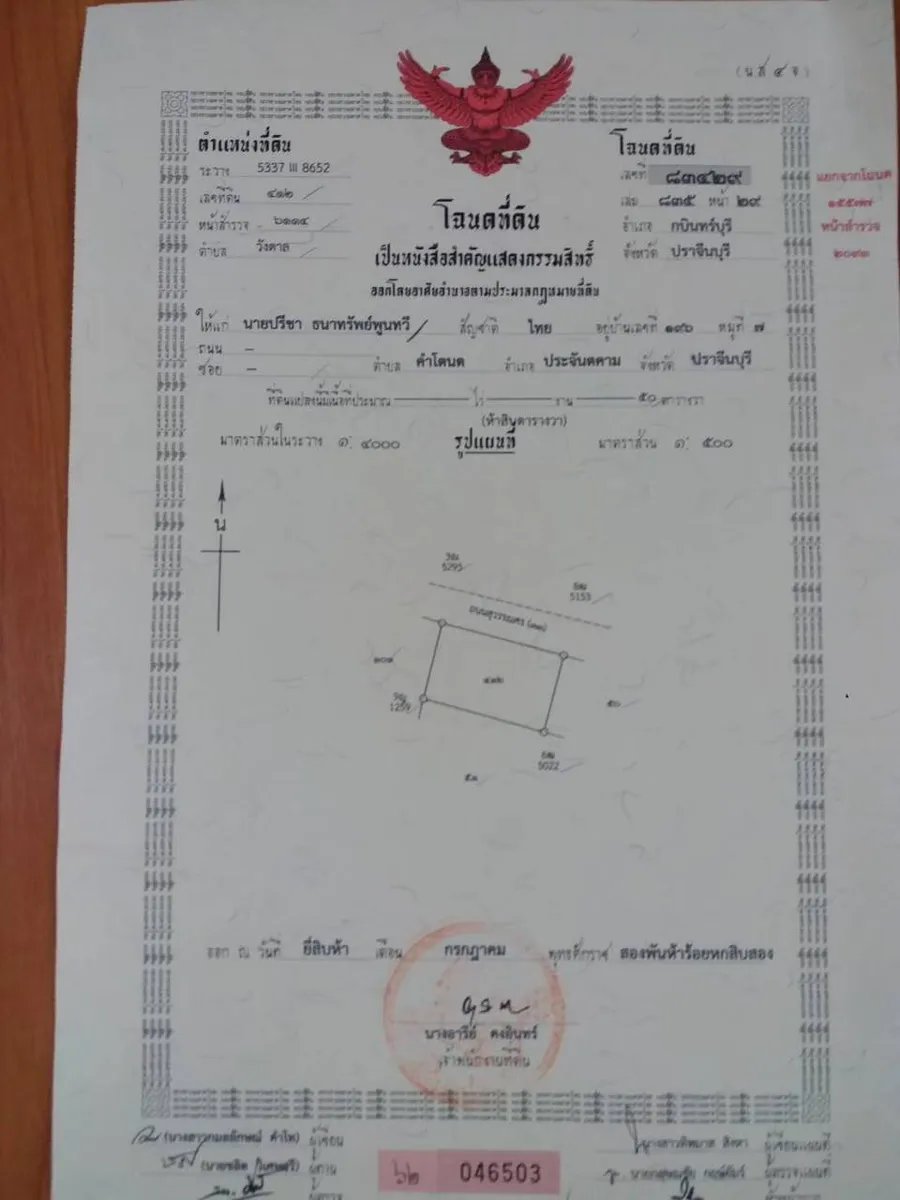 (น.ส. ๔ จ)
ตำแหน่งที่ดิน
ระวาง 5337 III 8652
เลขที่ดิน ๔๑๒
หน้าสำรวจ ๖๑๑๔
ตำบล วังดาล
โฉนดที่ดิน
เลขที่ ๘๓๔๒๙
เล่ม ๘๓๕ หน้า ๒๙
อำเภอ กบินทร์บุรี
จังหวัด ปราจีนบุรี
แยกจากโฉนด
๑๕๕๗๗
หน้าสำรวจ
๒๐๙๓
โฉนดที่ดิน
เป็นหนังสือสำคัญแสดงกรรมสิทธิ์
ออกโดยอาศัยอำนาจตามประมวลกฎหมายที่ดิน
ให้แก่ นายปรีชา ธนาทรัพย์พูนทวี สัญชาติ ไทย อยู่บ้านเลขที่ ๑๙๖ หมู่ที่ ๗
ถนน –
ซอย – ตำบล คำโตนด อำเภอ ประจันตคาม จังหวัด ปราจีนบุรี
ที่ดินแปลงนี้มีเนื้อที่ประมาณ ไร่ งาน ๕๐ ตารางวา
(ห้าสิบตารางวา)
มาตราส่วนในระวาง ๑: ๔๐๐๐ รูปแผนที่ มาตราส่วน ๑: ๕๐๐
น
5295
5153
ถนนสุวรรณศร
๔๑๒
๕๐
1259
5022
๕๑
ออก ณ วันที่ ยี่สิบห้า เดือน กรกฎาคม พุทธศักราช สองพันห้าร้อยหกสิบสอง
นางอารีย์ คงอินทร์
เจ้าพนักงานที่ดิน
ผู้เขียน
ผู้ทาน
ผู้ตรวจ
ผู้เขียนแผนที่
ผู้ตรวจแผนที่
๖๒ 046503